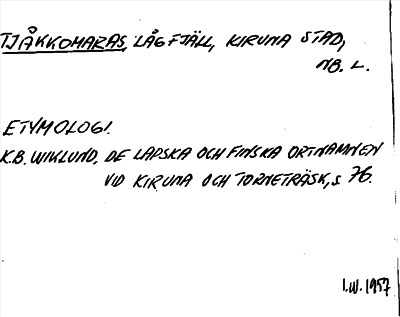 TJÅKKOMARAS, LÅGFJÄLL, KIRUNA STAD,
NB. L.
ETYMOLOGI.
K.B. WIKLUND, DE LAPSKA OCH FINSKA ORTNAMNEN
VID KIRUNA OCH TORNETRÄSK, s 76.
I.W. 1957